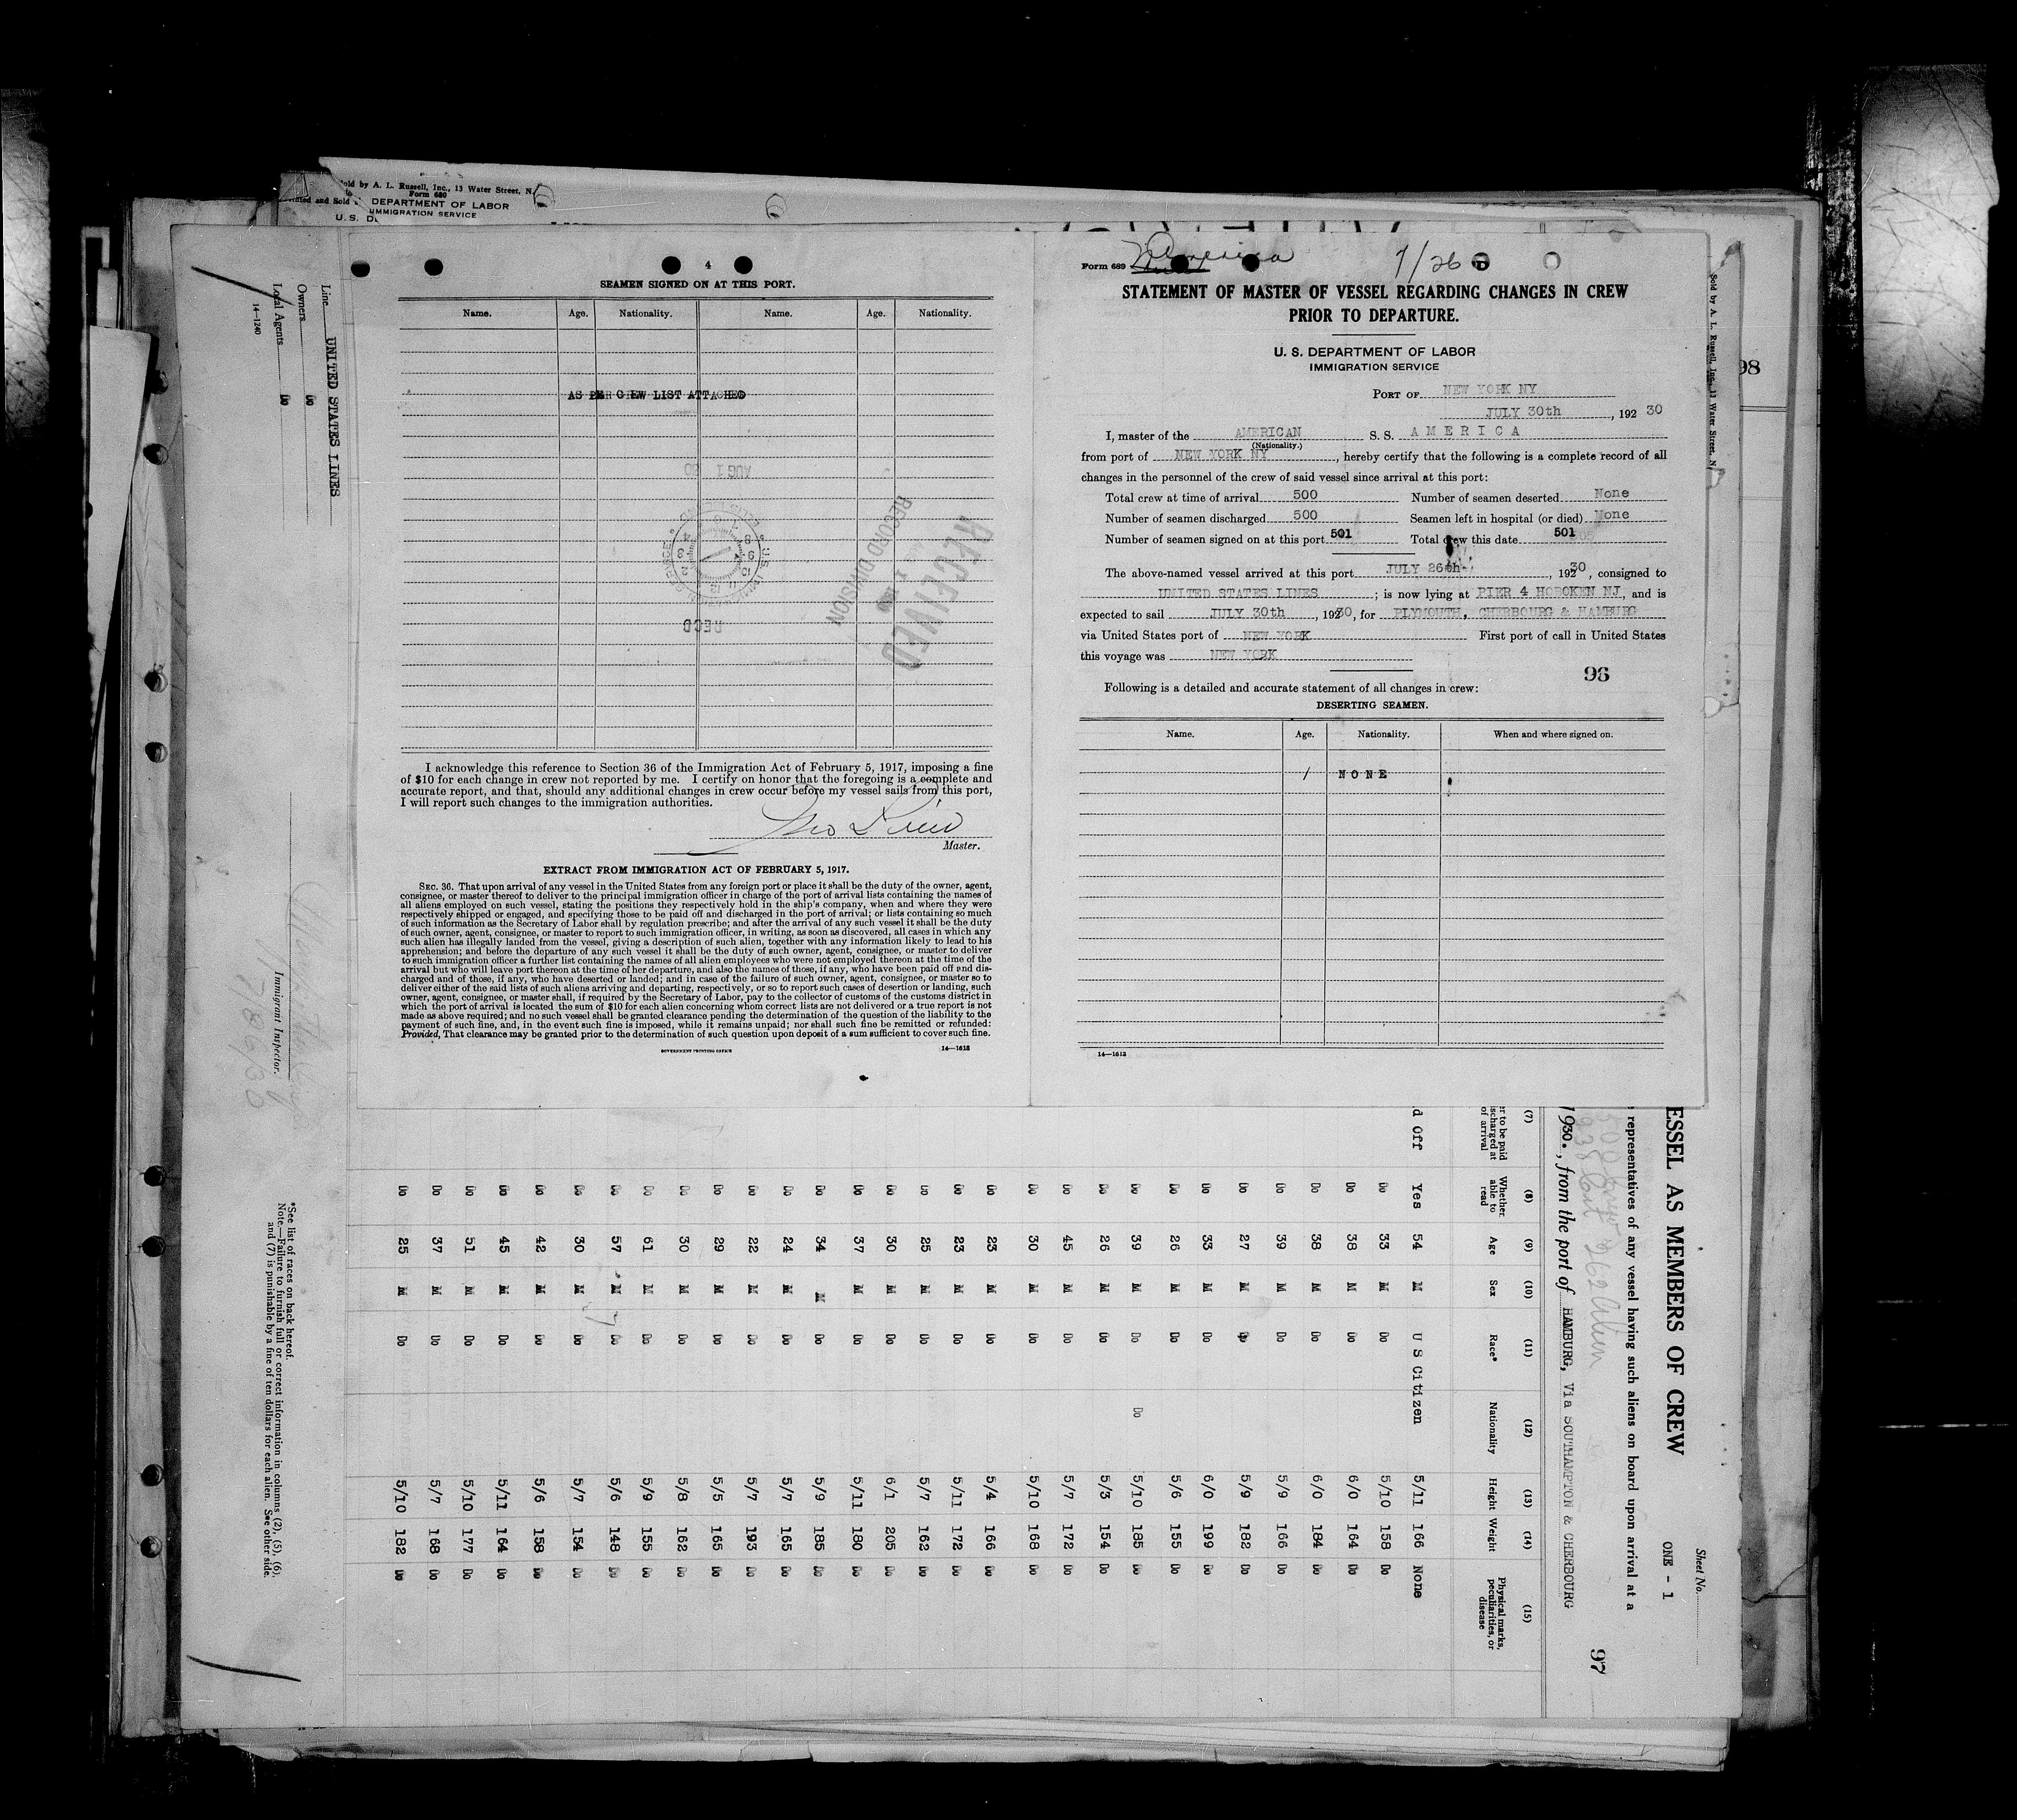 Sold by A. L. Russell, Inc., 13 Water Street, N.
Form 680
DEPARTMENT OF LABOR
IMMIGRATION SERVICE
4
SEAMEN SIGNED ON AT THIS PORT.
Name. Age. Nationality. Name. Age. Nationality.
AS PER CREW LIST ATTACHED
AUG 1 30
RECORD DIVISION
RECEIVED
RECD
I acknowledge this reference to Section 36 of the Immigration Act of February 5, 1917, imposing a fine
of $10 for each change in crew not reported by me. I certify on honor that the foregoing is a complete and
accurate report, and that, should any additional changes in crew occur before my vessel sails from this port,
I will report such changes to the immigration authorities.
Master.
EXTRACT FROM IMMIGRATION ACT OF FEBRUARY 5, 1917.
SEC. 36. That upon arrival of any vessel in the United States from any foreign port or place it shall be the duty of the owner, agent,
consignee, or master thereof to deliver to the principal immigration officer in charge of the port of arrival lists containing the names of
all aliens employed on such vessel, stating the positions they respectively hold in the ship's company, when and where they were
respectively shipped or engaged, and specifying those to be paid off and discharged in the port of arrival; or lists containing so much
of such information as the Secretary of Labor shall by regulation prescribe; and after the arrival of any such vessel it shall be the duty
of such owner, agent, consignee, or master to report to such immigration officer, in writing, as soon as discovered, all cases in which any
such alien has illegally landed from the vessel, giving a description of such alien, together with any information likely to lead to his
apprehension; and before the departure of any such vessel it shall be the duty of such owner, agent, consignee, or master to deliver
to such immigration officer a further list containing the names of all alien employees who were not employed thereon at the time of the
arrival but who will leave port thereon at the time of her departure, and also the names of those, if any, who have been paid off and dis-
charged and of those, if any, who have deserted or landed; and in case of the failure of such owner, agent, consignee, or master so to
deliver either of the said lists of such aliens arriving and departing, respectively, or so to report such cases of desertion or landing, such
owner, agent, consignee, or master shall, if required by the Secretary of Labor, pay to the collector of customs of the customs district in
which the port of arrival is located the sum of $10 for each alien concerning whom correct lists are not delivered or a true report is not
made as above required; and no such vessel shall be granted clearance pending the determination of the question of the liability to the
payment of such fine, and, in the event such fine is imposed, while it remains unpaid; nor shall such fine be remitted or refunded:
Provided, That clearance may be granted prior to the determination of such question upon deposit of a sum sufficient to cover such fine.
GOVERNMENT PRINTING OFFICE 14—1613
Form 689 America 7/26
STATEMENT OF MASTER OF VESSEL REGARDING CHANGES IN CREW
PRIOR TO DEPARTURE.
U. S. DEPARTMENT OF LABOR
IMMIGRATION SERVICE
PORT OF NEW YORK NY
JULY 30th, 192 30
I, master of the AMERICAN S. S. AMERICA
(Nationality.)
from port of NEW YORK NY, hereby certify that the following is a complete record of all
changes in the personnel of the crew of said vessel since arrival at this port:
Total crew at time of arrival 500 Number of seamen deserted None
Number of seamen discharged 500 Seamen left in hospital (or died) None
Number of seamen signed on at this port 501 Total crew this date 501
The above-named vessel arrived at this port JULY 26th, 192 30, consigned to
UNITED STATES LINES; is now lying at PIER 4 HOBOKEN NJ, and is
expected to sail JULY 30th, 192 30, for PLYMOUTH, CHERBOURG & HAMBURG
via United States port of NEW YORK First port of call in United States
this voyage was NEW YORK
96
Following is a detailed and accurate statement of all changes in crew:
DESERTING SEAMEN.
Name. Age. Nationality. When and where signed on.
NONE
14—1613
98
Sold by A. L. Russell, Inc., 13 Water Street, N
Sheet No.
ESSEL AS MEMBERS OF CREW ONE - 1
representatives of any vessel having such aliens on board upon arrival at a
1930., from the port of HAMBURG, Via SOUTHAMPTON & CHERBOURG
97
(7) (8) (9) (10) (11) (12) (13) (14) (15)
er to be paid
ischarged at
of arrival
Whether able to read
Age Sex Race* Nationality Height Weight
Physical marks, peculiarities, or disease
d Off Yes 54 M U S Citizen 5/11 166 None
Do 33 M Do 5/10 158 Do
Do 38 M Do 6/0 164 Do
Do 38 M Do 6/0 184 Do
Do 39 M Do 5/9 166 Do
Do 27 M Do 5/9 182 Do
Do 33 M Do 6/0 199 Do
Do 26 M Do 5/6 155 Do
Do 39 M Do Do 5/10 185 Do
Do 26 M Do 5/3 154 Do
Do 45 M Do 5/7 172 Do
Do 30 M Do 5/10 168 Do
Do 23 M Do 5/4 166 Do
Do 23 M Do 5/11 172 Do
Do 25 M Do 5/7 162 Do
Do 30 M Do 6/1 205 Do
Do 37 M Do 5/11 180 Do
Do 34 M Do 5/9 185 Do
Do 24 M Do 5/7 165 Do
Do 22 M Do 5/7 193 Do
Do 29 M Do 5/5 165 Do
Do 30 M Do 5/8 162 Do
Do 61 M Do 5/9 155 Do
Do 57 M Do 5/6 148 Do
Do 30 M Do 5/7 154 Do
Do 42 M Do 5/6 158 Do
Do 45 M Do 5/11 164 Do
Do 51 M Do 5/10 177 Do
Do 37 M Do 5/7 168 Do
Do 25 M Do 5/10 182 Do
Line UNITED STATES LINES
Owners Do
Local Agents Do
14—1240
Immigrant Inspector.
*See list of races on back hereof.
Note.—Failure to furnish full or correct information in columns (2), (5), (6),
and (7) is punishable by a fine of ten dollars for each alien. See other side.